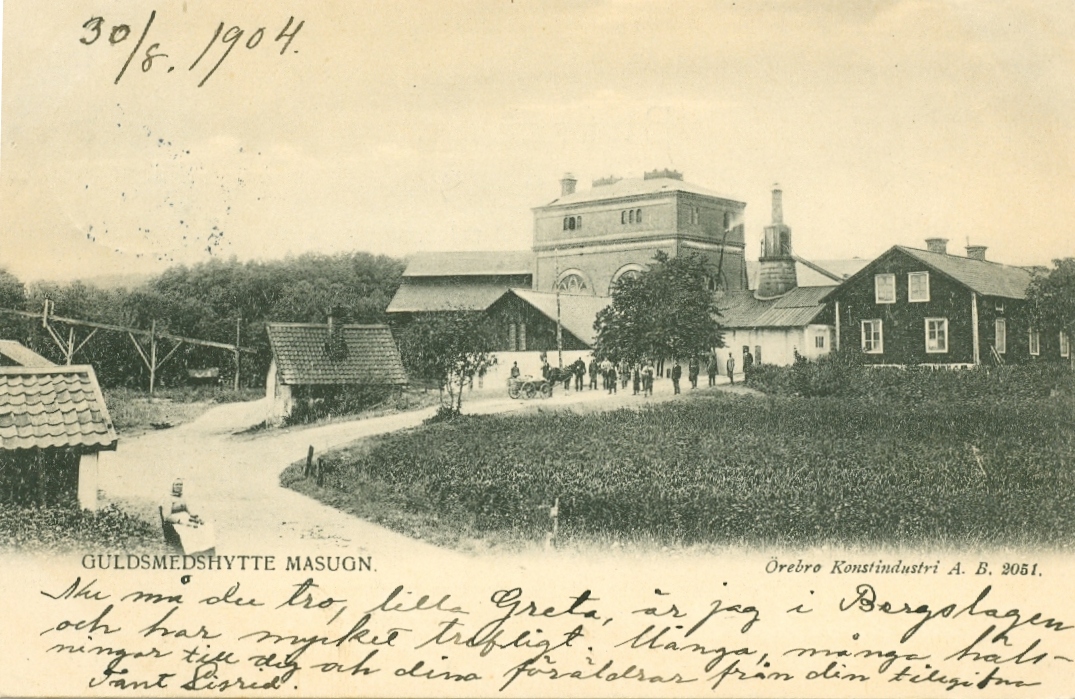 30/8. 1904.
GULDSMEDSHYTTE MASUGN.
Örebro Konstindustri A. B. 2051.
Nu må du tro, lilla Greta, är jag i Bergslagen
och har mycket trefligt. Många, många häls-
ningar till dig och dina föräldrar från din tillgifna
Tant Sigrid.